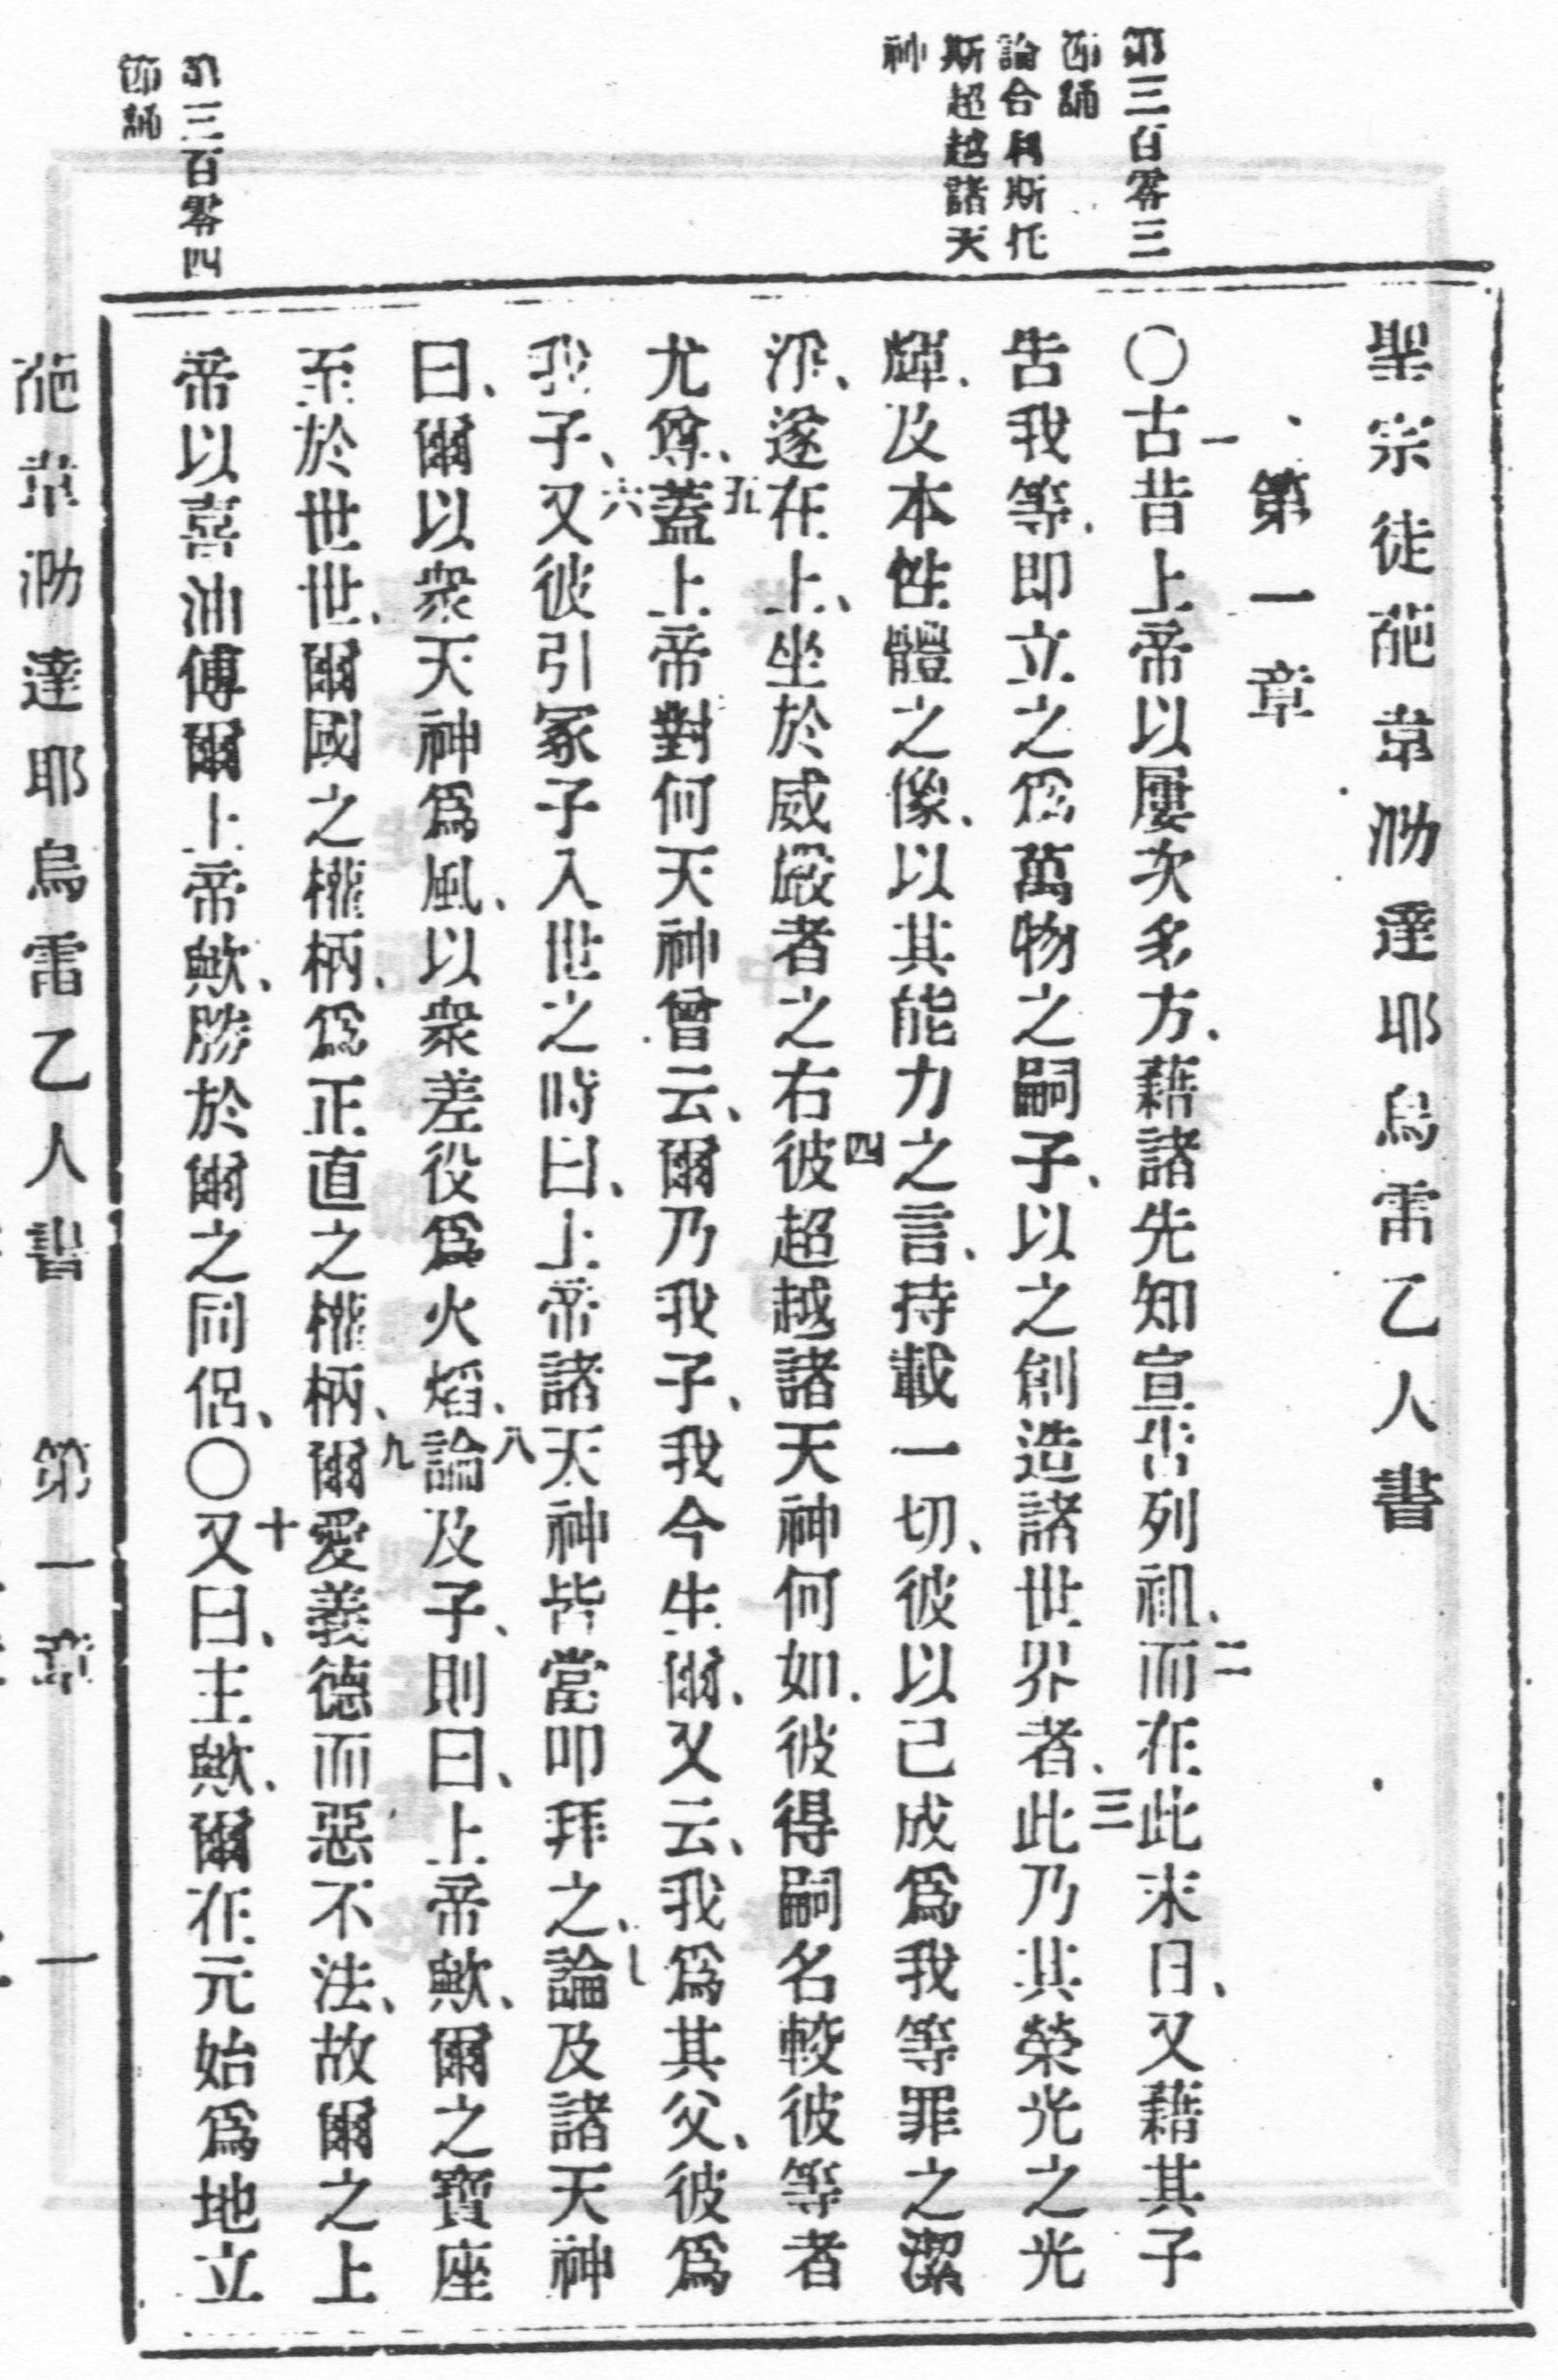 第三百零三
節誦
論合利斯托
斯超越諸天
神
第三百零四
節誦
聖宗徒葩韋泐達耶烏雷乙人書
第一章
〇一古昔上帝以屢次多方、藉諸先知宣告列祖、二而在此末日、又藉其子
告我等、即立之爲萬物之嗣子、以之創造諸世界者、三此乃其榮光之光
輝、及本性體之像、以其能力之言、持載一切、彼以己成爲我等罪之潔
淨、遂在上、坐於威嚴者之右四彼超越諸天神何如、彼得嗣名較彼等者
尤尊、五蓋上帝對何天神曾云、爾乃我子、我今生爾、又云、我爲其父、彼爲
我子、六又彼引冢子入世之時曰、上帝諸天神皆當叩拜之、七論及諸天神
曰、爾以衆天神爲風、以衆差役爲火焰、八論及子、則曰、上帝歟、爾之寶座
至於世世、爾國之權柄、爲正直之權柄、九爾愛義德而惡不法、故爾之上
帝以喜油傅爾上帝歟、勝於爾之同侶、〇十又曰、主歟、爾在元始爲地立
葩韋泐達耶烏雷乙人書 第一章 一